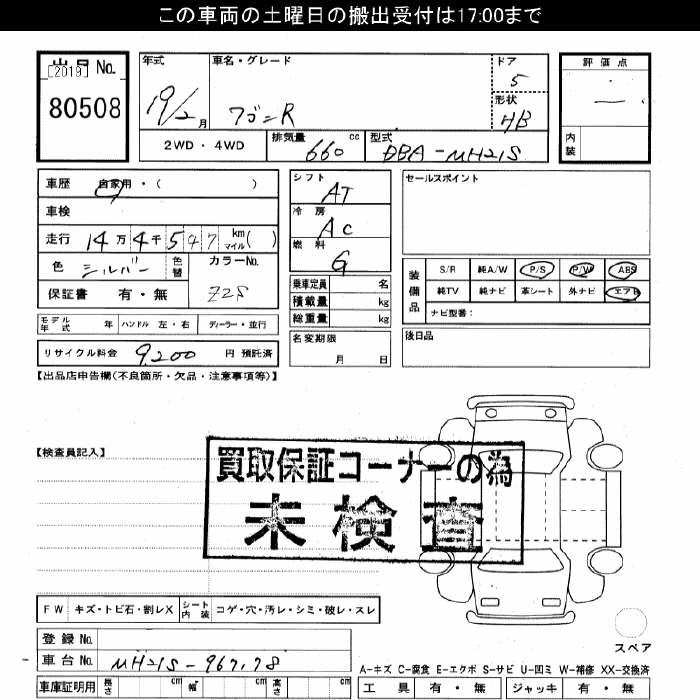 この車両の土曜日の搬出受付は17:00まで
出品 No.
[2019]
80508
年式
19/2 月
車名・グレード
ワゴンR
ドア
5
形状
HB
評価点
内装
2WD・4WD
排気量 660 cc
型式 DBA-MH21S
車歴 自家用・( )
車検
走行 14万4千547 km マイル( )
色 シルバー
色替
カラーNo.
Z2S
保証書 有・無
シフト
AT
冷房
AC
燃料
G
乗車定員 名
積載量 kg
総重量 kg
セールスポイント
装備品
S/R 純A/W P/S P/W ABS
純TV 純ナビ 革シート 外ナビ エアB
ナビ型番:
モデル年式 年 ハンドル 左・右 ディーラー・並行
名変期限
月 日
後日品
リサイクル料金 9,200 円 預託済
【出品店申告欄(不良箇所・欠品・注意事項等)】
【検査員記入】
買取保証コーナーの為
未検査
FW キズ・トビ石・割レX シート内装 コゲ・穴・汚レ・シミ・破レ・スレ
スペア
登録 No.
車台 No. MH21S-967178
A-キズ C-腐食 E-エクボ S-サビ U-凹ミ W-補修 XX-交換済
車庫証明用 長さ cm 幅 cm 高さ cm
工具 有・無 ジャッキ 有・無